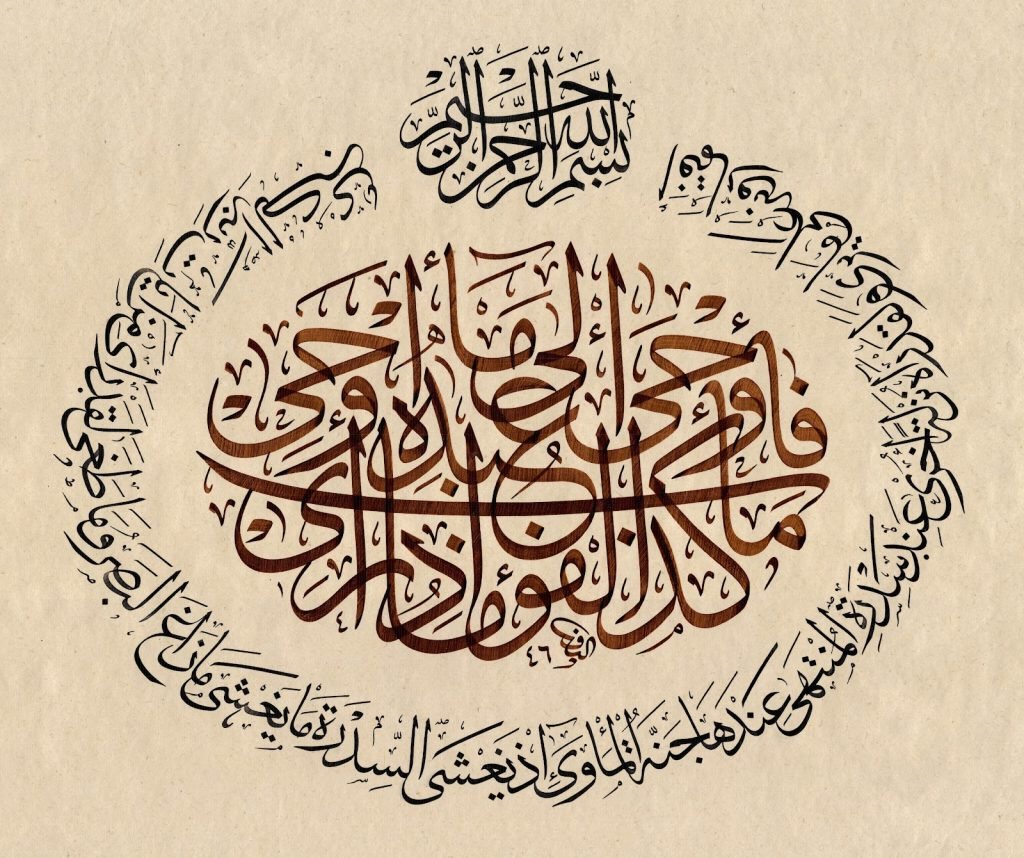 بسم الله الرحمن الرحيم
فأوحى إلى عبده ما أوحى
ما كذب الفؤاد ما رأى
٤٦
أفتمارونه على ما يرى ولقد رآه نزلة أخرى عند سدرة المنتهى عندها جنة المأوى اذ يغشى السدرة ما يغشى ما زاغ البصر وما طغى لقد رأى من آيات ربه الكبرى